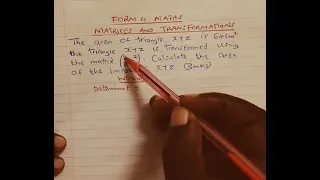 FORM 4 MATHS
MATRICES AND TRANSFORMATIONS
The area of triangle XYZ is cm²
the triangle XYZ is transformed using
the matrix Calculate the area
of the XYZ (3mks)
Determinant =